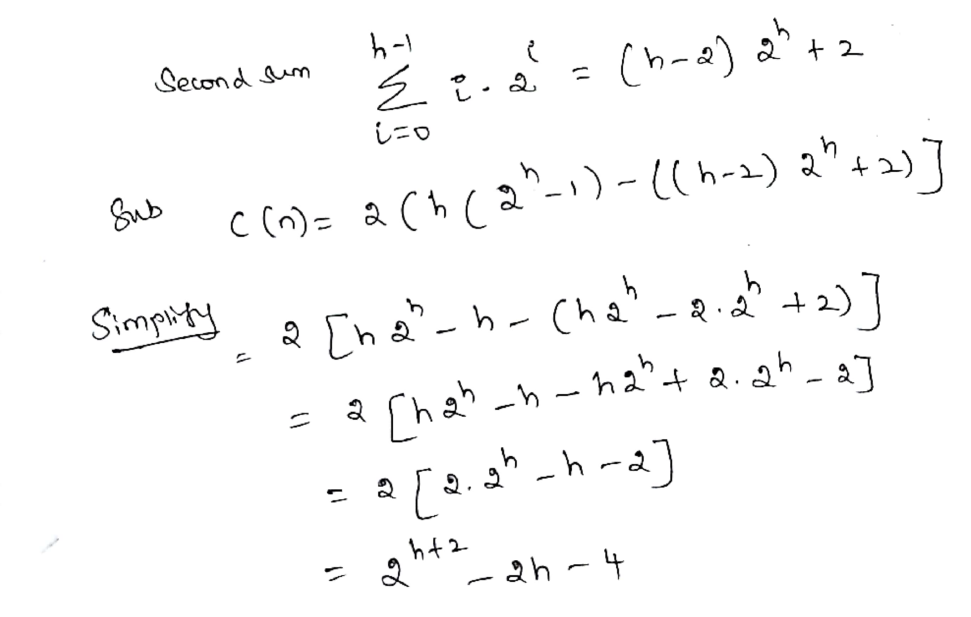 Second sum \sum_{i=0}^{h-1} i \cdot 2^i = (h-2) 2^h + 2
Sub C(n) = 2 (h (2^h - 1) - ((h-2) 2^h + 2)]
Simplify
= 2 [h 2^h - h - (h 2^h - 2 \cdot 2^h + 2)]
= 2 [h 2^h - h - h 2^h + 2 \cdot 2^h - 2]
= 2 [2 \cdot 2^h - h - 2]
= 2^{h+2} - 2h - 4